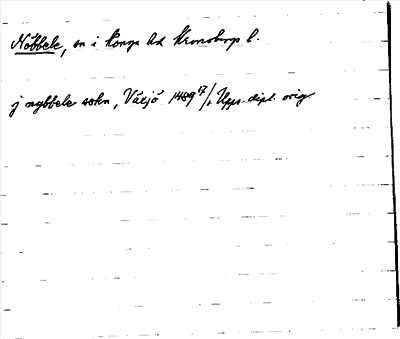 Nöbbele, sn i Konga hd Kronobergs l.
j nybbele sokn, Växjö 1489 17/ Upps. dipl. orig